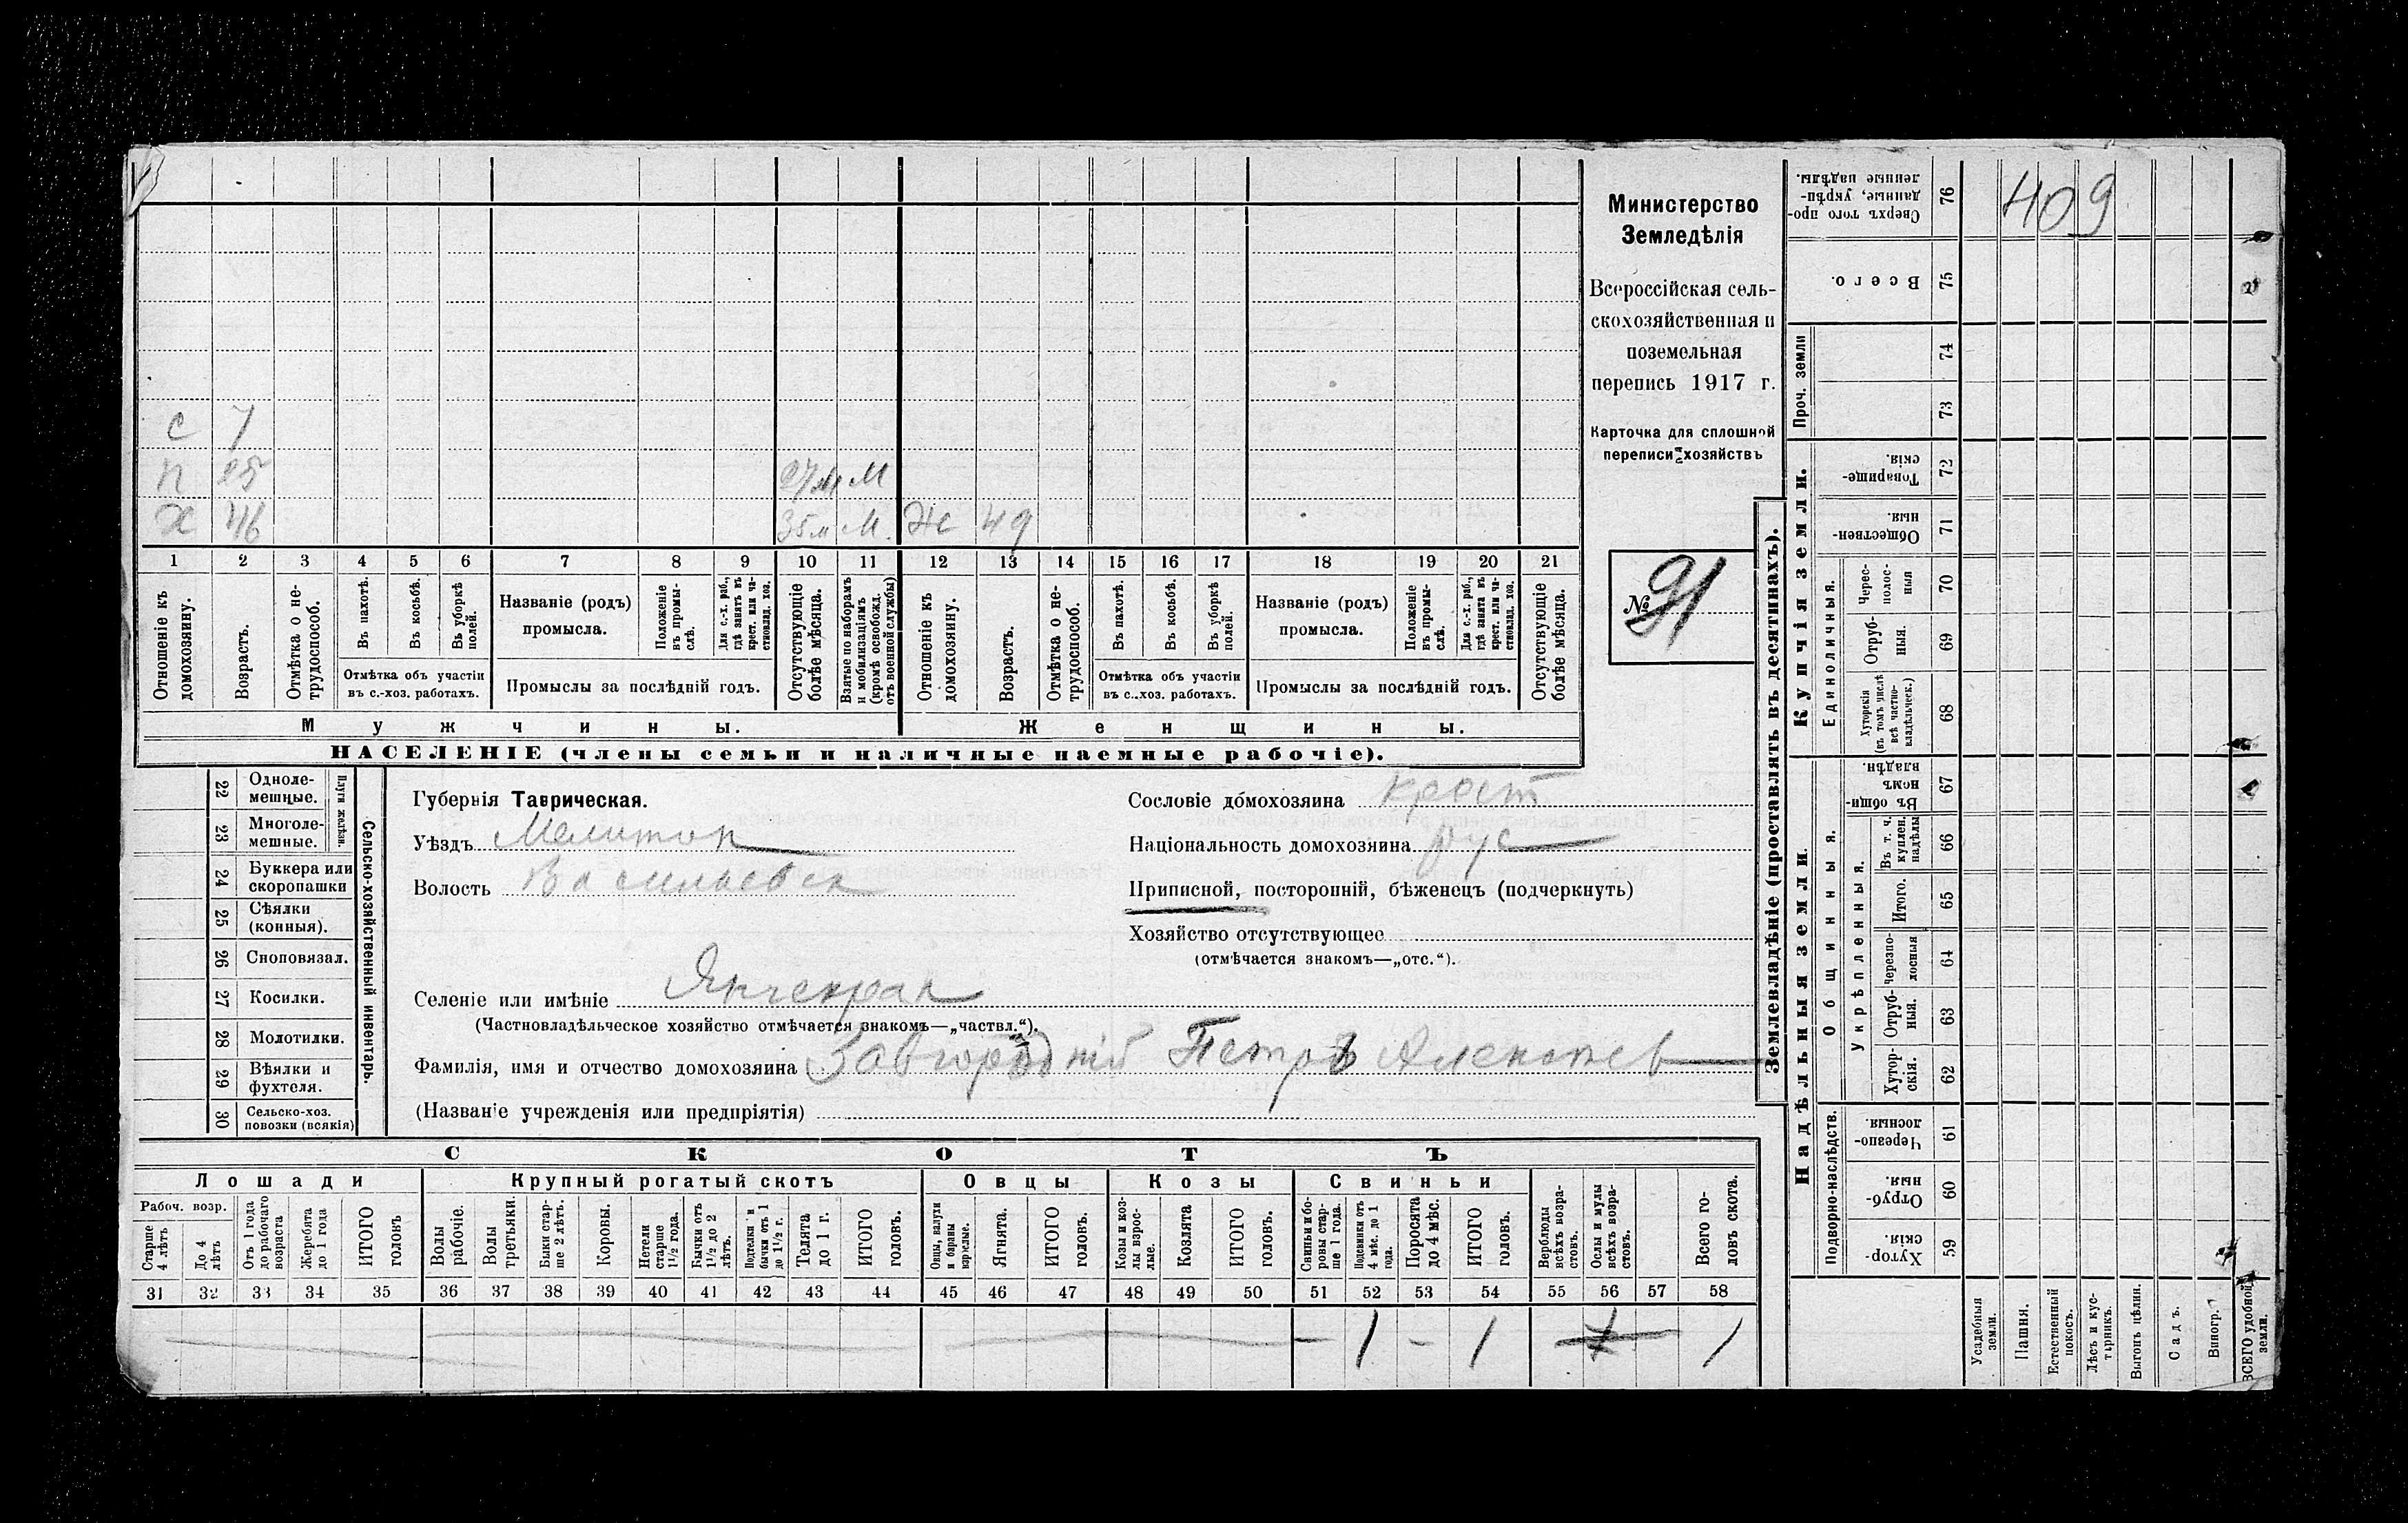 409
С 7
П 25 27 м М
Х 46 35 м М. Ж 49
1 2 3 4 5 6 7 8 9 10 11 12 13 14 15 16 17 18 19 20 21
Отношеніе къ домохозяину.
Возрастъ.
Отмѣтка о не-трудоспособ.
Въ пахотѣ.
Въ косьбѣ.
Въ уборкѣ полей.
Отмѣтка объ участіи въ с.-хоз. работахъ.
Названіе (родъ) промысла.
Положеніе въ промы-слѣ.
Для с.-х. раб., гдѣ занятъ въ крест. или ча-стновлад. хоз.
Промыслы за послѣдній годъ.
Отсутствующіе болѣе мѣсяца.
Взятые по наборамъ и мобилизаціямъ (кромѣ освобожд. отъ военной службы)
Отношеніе къ домохозяину.
Возрастъ.
Отмѣтка о не-трудоспособ.
Въ пахотѣ.
Въ косьбѣ.
Въ уборкѣ полей.
Отмѣтка объ участіи въ с.-хоз. работахъ.
Названіе (родъ) промысла.
Положеніе въ промы-слѣ.
Для с.-х. раб., гдѣ занята въ крест. или ча-стновлад. хоз.
Промыслы за послѣдній годъ.
Отсутствующіе болѣе мѣсяца.
Мужчины. Женщины.
НАСЕЛЕНІЕ (члены семьи и наличные наемные рабочіе).
Министерство
Земледѣлія
Всероссійская сель-
скохозяйственная и
поземельная
перепись 1917 г.
Карточка для сплошной
переписи хозяйствъ
№ 91
22 Одноле-мешные.
23 Многоле-мешные.
Плуги желѣзн.
24 Буккера или скоропашки
25 Сѣялки (конныя).
26 Сноповязал.
27 Косилки.
28 Молотилки.
29 Вѣялки и фухтеля.
30 Сельско-хоз. повозки (всякія)
Сельско-хозяйственный инвентарь.
Губернія Таврическая.
Уѣздъ Мелитоп
Волость Васильевск
Сословіе домохозяина крест
Національность домохозяина рус
Приписной, посторонній, бѣженецъ (подчеркнуть)
Хозяйство отсутствующее
(отмѣчается знакомъ—„отс.“).
Селеніе или имѣніе Янчекрак
(Частновладѣльческое хозяйство отмѣчается знакомъ—„частвл.“).
Фамилія, имя и отчество домохозяина Завгородній Петръ Алексѣев
(Названіе учрежденія или предпріятія)
СКОТЪ
Лошади Крупный рогатый скотъ Овцы Козы Свиньи
Рабоч. возр.
Старше 4 лѣтъ
До 4 лѣтъ
Отъ 1 года до рабочаго возраста
Жеребята до 1 года
ИТОГО головъ
Волы рабочіе.
Волы третьяки.
Быки стар-ше 2 лѣтъ.
Коровы.
Нетели старше 1½ года.
Бычки отъ 1½ до 2 лѣтъ.
Подтелки и бычки отъ 1 до 1½ г.
Телята до 1 г.
ИТОГО головъ.
Овцы, валухи и бараны взрослые.
Ягнята.
ИТОГО головъ.
Козы и коз-лы взрос-лые.
Козлята
ИТОГО головъ.
Свиньи и бо-ровы стар-ше 1 года.
Подсвинки отъ 4 мѣс. до 1 года.
Поросята до 4 мѣс.
ИТОГО головъ.
Верблюды всѣхъ возра-стовъ.
Ослы и мулы всѣхъ возра-стовъ.
Всего го-ловъ скота.
31 32 33 34 35 36 37 38 39 40 41 42 43 44 45 46 47 48 49 50 51 52 53 54 55 56 57 58
— 1 — 1 1
Землевладѣніе (проставлять въ десятинахъ).
Сверхъ того про-данные, укрѣп-ленные надѣлы. 76
Всего. 75
Проч. земли 74 73
Купчія земли.
Товарище-скія. 72
Обществен-ныя. 71
Единоличныя.
Черес-полос-ныя 70
Отруб-ныя. 69
Хуторскія (въ томъ числѣ всѣ частно-владѣльческ.) 68
Надѣльныя земли
Общинныя.
Въ общин-номъ владѣн. 67
Укрѣпленныя.
Въ т. ч. куплен. надѣлы 66
Итого. 65
Черезпо-лосныя 64
Отруб-ныя. 63
Хутор-скія. 62
Подворно-наслѣдств.
Черезпо-лосныя. 61
Отруб-ныя. 60
Хутор-скія. 59
Усадебныя земли.
Пашня.
Естественный покосъ.
Лѣсъ и кус-тарникъ.
Выгонъ цѣлин.
Садъ.
Виногр.
ВСЕГО удобной земли.